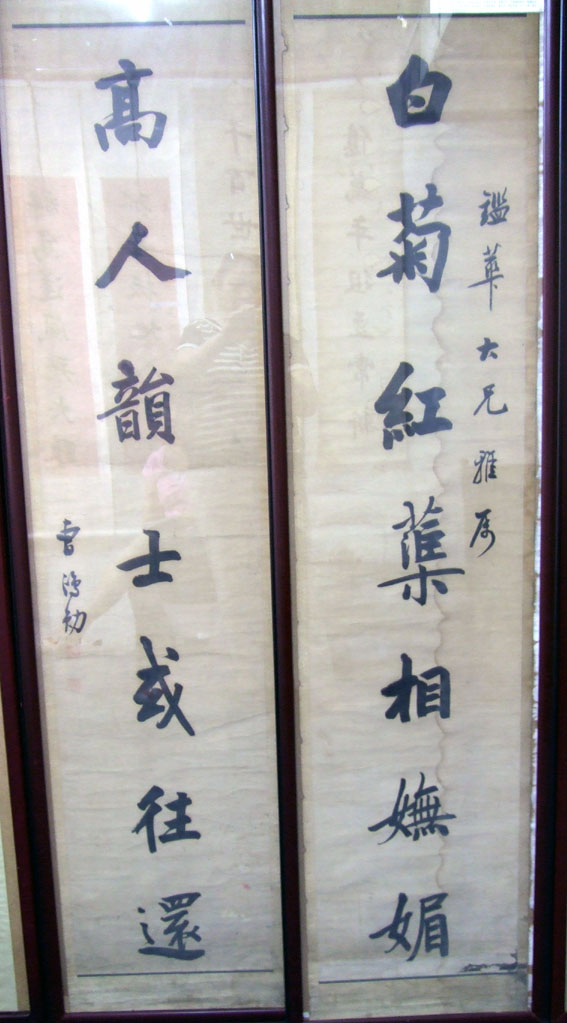 白菊紅蕖相嫵媚
鑑華大兄雅属
高人韻士或往還
曹鴻勛